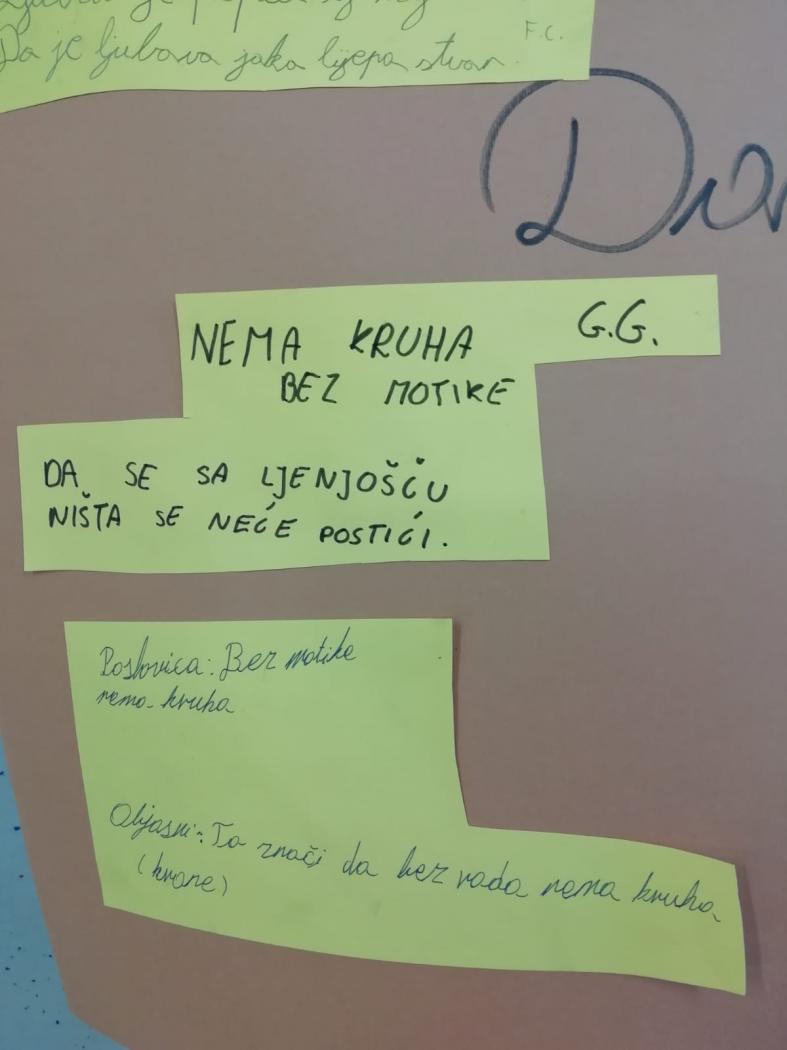 Da je ljubava jaka lijepa stvar. F.C.
NEMA KRUHA G.G.
BEZ MOTIKE
DA SE SA LJENJOŠĆU
NIŠTA SE NEĆE POSTIĆI.
Poslovica: Bez motike
nema kruha
Objasni: To znači da bez rada nema kruha
(hrane)